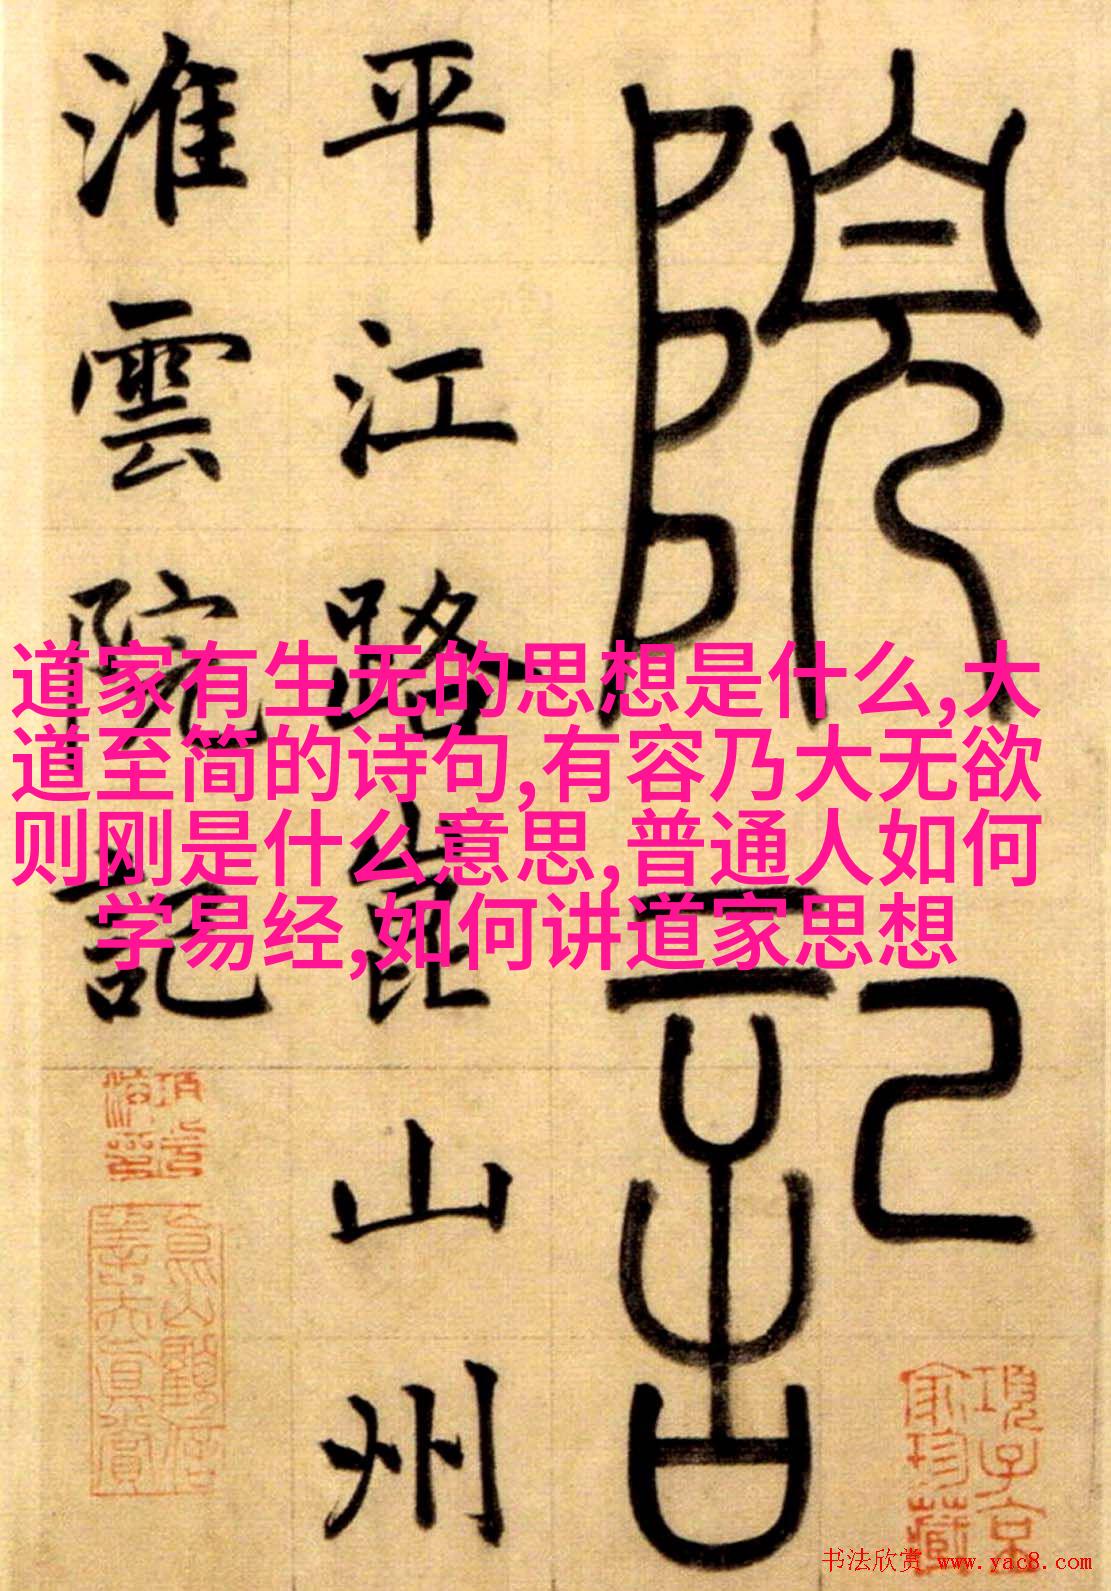 院記
平江路崑山州
淮雲院記
道家有生无的思想是什么,大
道至简的诗句,有容乃大无欲
则刚是什么意思,普通人如何
学易经,如何讲道家思想
項子京
家珍藏
书法欣赏 www.yac8.com